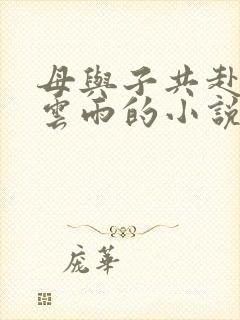 母與子共赴
雲雨的小說
龐華